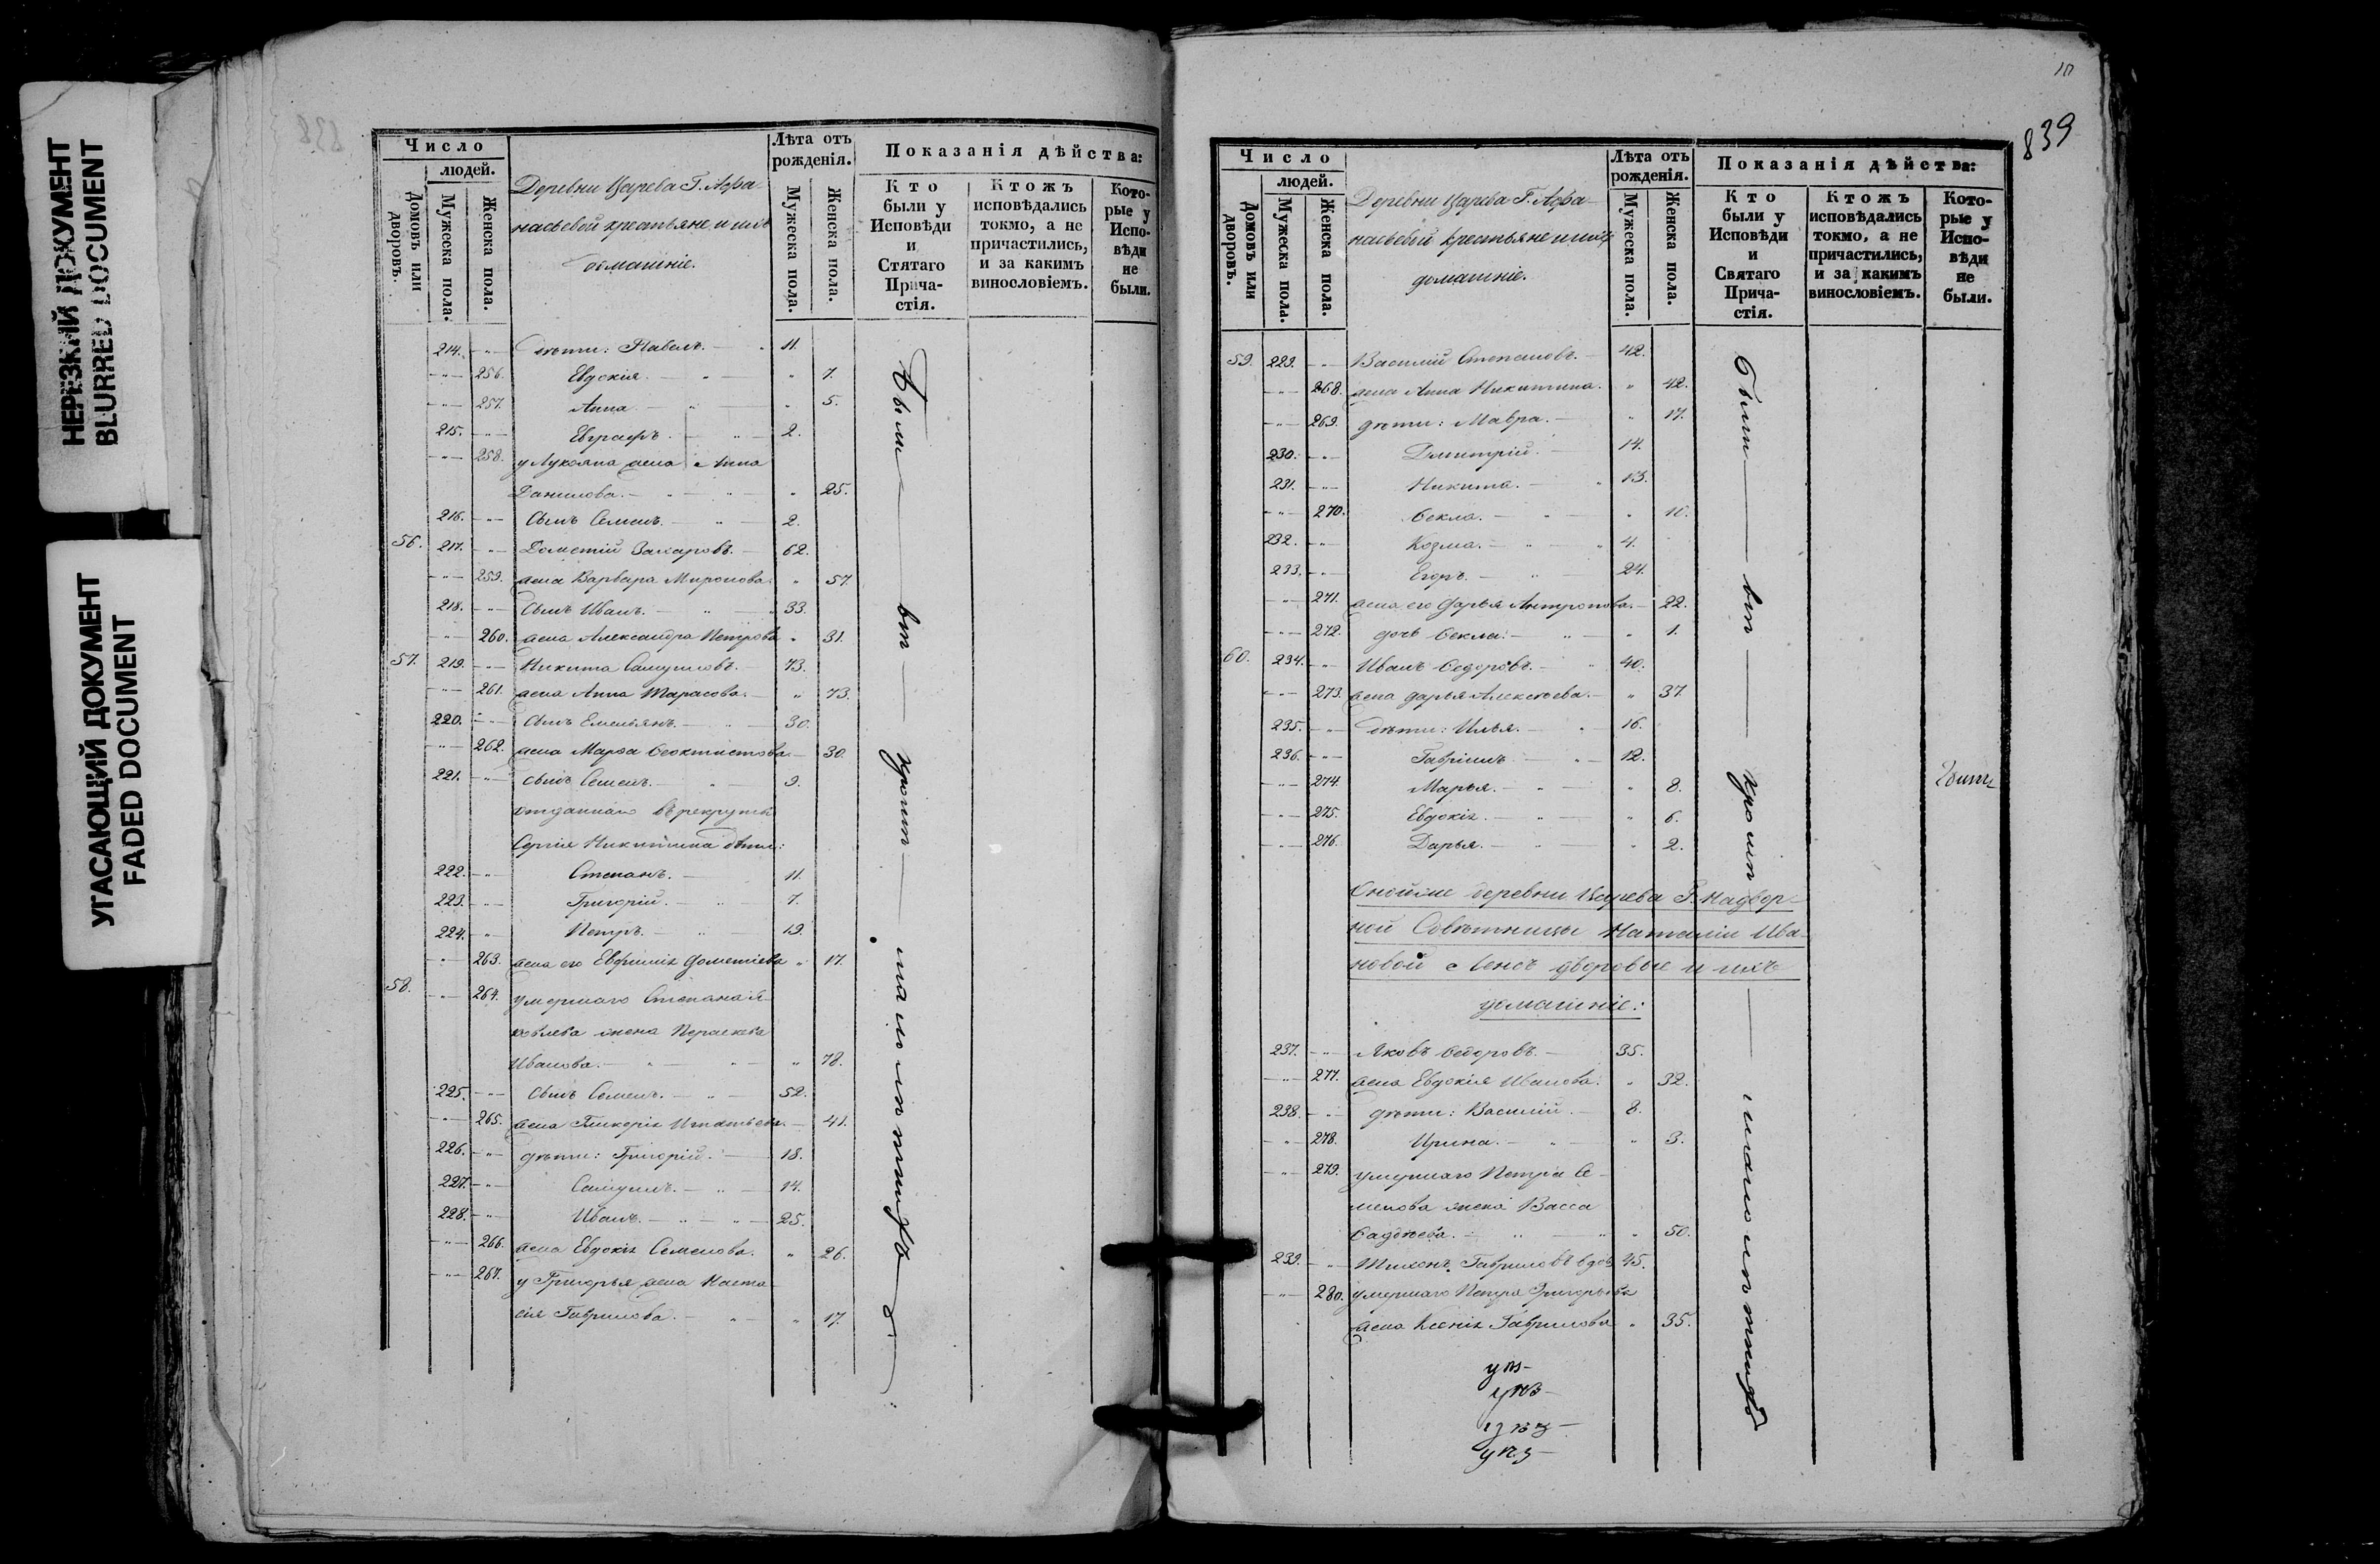 НЕРЕЗКИЙ ДОКУМЕНТ
BLURRED DOCUMENT
УГАСАЮЩИЙ ДОКУМЕНТ
FADED DOCUMENT
Число
людей.
Домовъ или дворовъ.
Мужеска пола.
Женска пола.
Деревни Царева Г. Афа-
насьевой крестьяне и ихъ
домашніе.
Лѣта отъ рожденія.
Мужеска пола.
Женска пола.
Показанія дѣйства:
Кто были у Исповѣди и Стятаго Прича-стія.
Ктожъ исповѣдались токмо, а не причастились, и за какимъ винословіемъ.
Кото-рые у Испо-вѣди не были.
214. дѣти: Павелъ. 11.
256. Евдокія. 7.
257. Анна 5.
215. Евграфъ. 2.
258. у Лукояна жена Анна
Данилова. 25.
216. сынъ Семенъ. 2.
56. 217. Дометій Захаровъ. 62.
259. жена Варвара Миронова. 57.
218. сынъ Иванъ. 33.
260. жена Александра Петрова 31.
57. 219. Никита Самуиловъ. 73.
261. жена Анна Тарасова. 73.
220. сынъ Емельянъ. 30.
262. жена Марѳа Ѳеоктистова. 30.
221. сынъ Семенъ. 9.
отданнаго въ рекруты
Сергія Никитина дѣти:
222. Степанъ. 11.
223. Григорій. 7.
224. Петръ. 19.
263. жена его Евфимія Дометіева 17.
58. 264. умершаго Степана Я-
ковлева жена Параскева
Иванова. 78.
225. сынъ Семенъ. 52.
265. жена Гликерія Игнатьева. 41.
226. дѣти: Григорій. 18.
227. Самуилъ. 14.
228. Иванъ. 25.
266. жена Евдокія Семенова. 26.
267. у Григорья жена Наста-
сія Гаврилова. 17.
Были
839
Число
людей.
Домовъ или дворовъ.
Мужеска пола.
Женска пола.
Деревни Царева Г. Афа-
насьевой крестьяне и ихъ
домашніе.
Лѣта отъ рожденія.
Мужеска пола.
Женска пола.
Показанія дѣйства:
Кто были у Исповѣди и Святаго Прича-стія.
Ктожъ исповѣдались токмо, а не причастились, и за какимъ винословіемъ.
Кото-рые у Испо-вѣди не были.
59. 229. Василій Степановъ. 42.
268. жена Анна Никитина. 42.
269. дѣти: Мавра. 17.
230. Димитрій. 14.
231. Никита. 13.
270. Ѳекла. 10.
232. Козма. 4.
233. Егоръ. 24.
271. жена его Дарья Антропова. 22.
272. дочь Ѳекла. 1.
60. 234. Иванъ Ѳедоровъ. 40.
273. жена Дарья Алексѣева. 37.
235. дѣти: Илья. 16.
236. Гавріилъ. 12.
274. Марья. 8.
275. Евдокія. 6.
276. Дарья. 2.
Оной же деревни Царева Г. Надвор-
ной Совѣтницы Наталіи Ива-
новой дворовые и ихъ
домашніе:
237. Яковъ Ѳедоровъ. 35.
277. жена Евдокія Иванова. 32.
238. дѣти: Василій. 8.
278. Ирина. 3.
279. умершаго Петра Се-
менова жена Васса
Ѳадѣева. 50.
239. Тихонъ Гавриловъ вдов 45.
280. умершаго Петра Григорьева
жена Ксенія Гаврилова 35.
Были